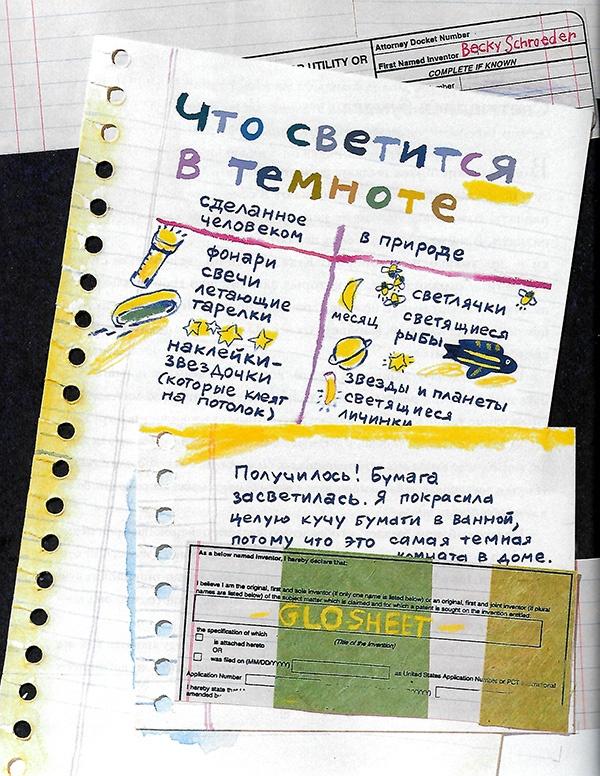 Attorney Docket Number
UTILITY OR
First Named Inventor Becky Schroeder
COMPLETE IF KNOWN
Что светится
в темноте
сделанное
человеком
фонари
свечи
летающие
тарелки
наклейки-
звездочки
(которые клеят
на потолок)
в природе
светлячки
месяц
светящиеся
рыбы
звезды и планеты
светящиеся
личинки
Получилось! Бумага
засветилась. Я покрасила
целую кучу бумаги в ванной,
потому что это самая темная
комната в доме.
As a below named Inventor, I hereby declare that:
I believe I am the original, first and sole inventor (if only one name is listed below) or an original, first and joint inventor (if plural
names are listed below) of the subject matter which is claimed and for which a patent is sought on the invention entitled:
GLO SHEET
(Title of the Invention)
the specification of which
is attached hereto
OR
was filed on (MM/DD/YYYY)
as United States Application Number or PCT International
Application Number
I hereby state
amended by